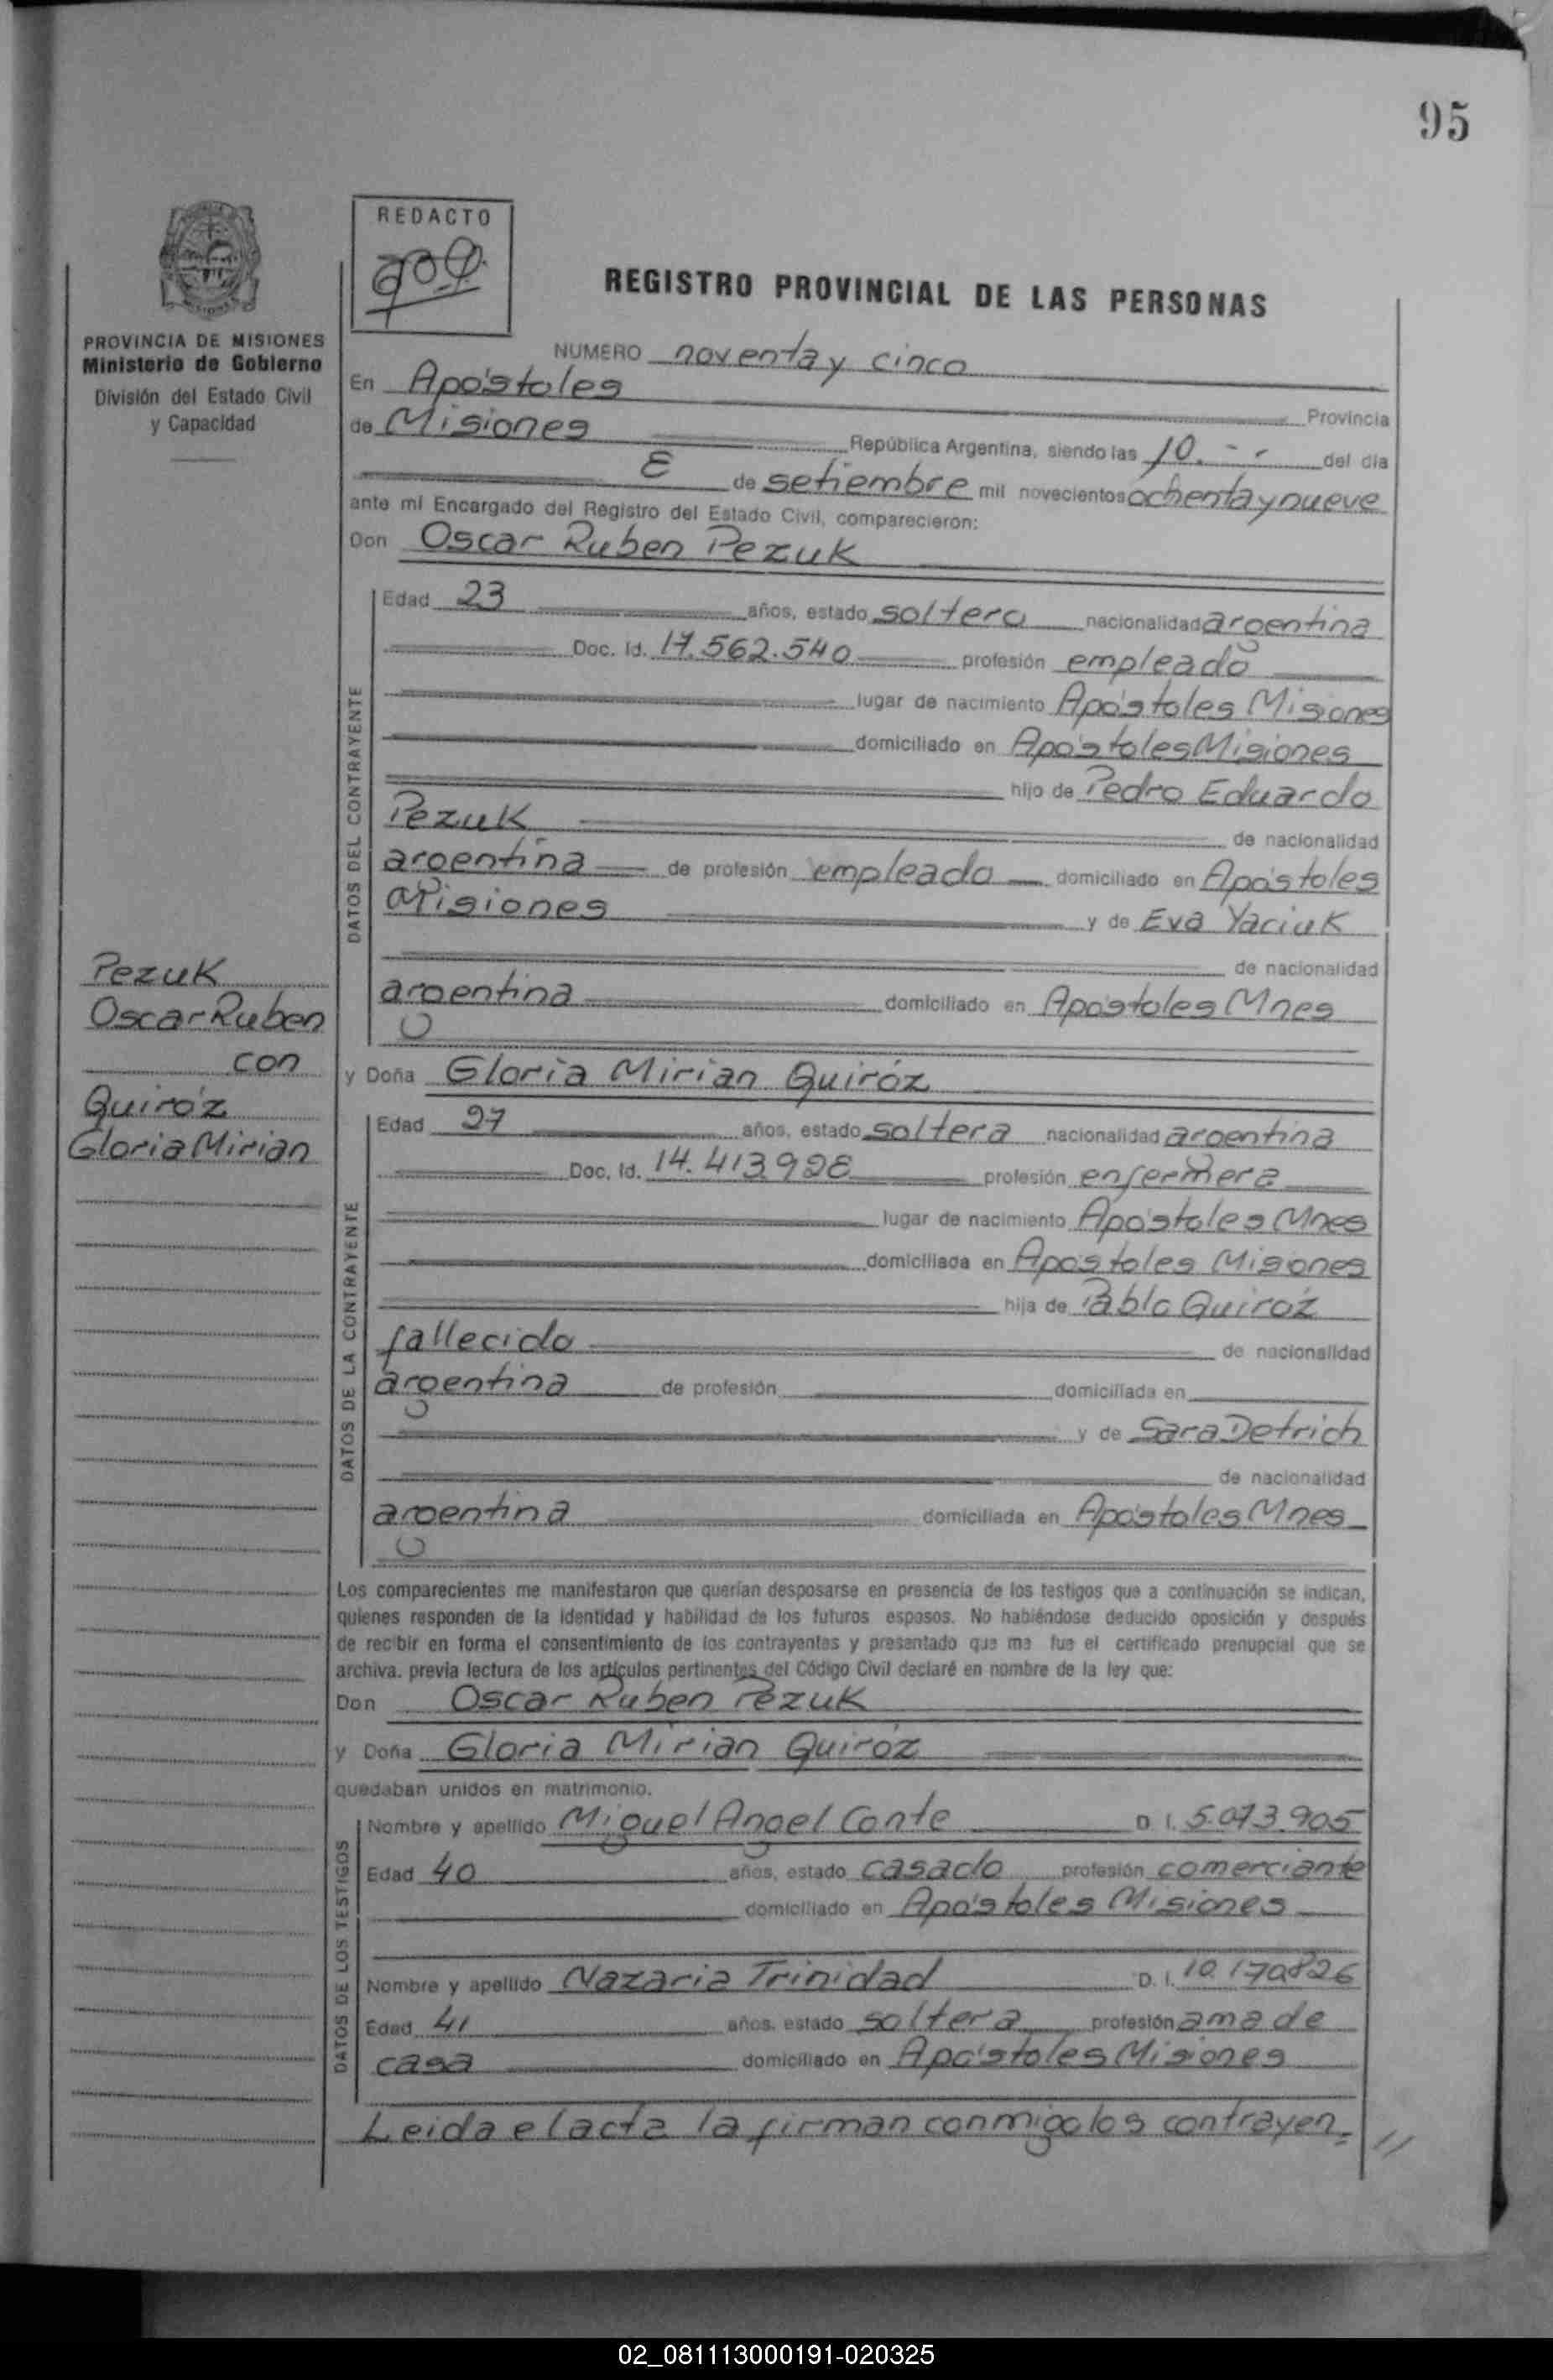 95
REDACTO
REGISTRO PROVINCIAL DE LAS PERSONAS
PROVINCIA DE MISIONES
Ministerio de Gobierno
División del Estado Civil
y Capacidad
NUMERO noventa y cinco
En Apóstoles Provincia
de Misiones República Argentina, siendo las 10.-- del día
8 de setiembre mil novecientos ochenta y nueve
ante mí Encargado del Registro del Estado Civil, comparecieron:
Don Oscar Ruben Pezuk
DATOS DEL CONTRAYENTE
Edad 23 años, estado soltero nacionalidad argentina
Doc. Id. 17.562.540 profesión empleado
lugar de nacimiento Apóstoles Misiones
domiciliado en Apóstoles Misiones
hijo de Pedro Eduardo
Pezuk de nacionalidad
argentina de profesión empleado domiciliado en Apóstoles
Misiones y de Eva Yaciuk
de nacionalidad
argentina domiciliado en Apóstoles Mnes
Pezuk
Oscar Ruben
con
Quiróz
Gloria Mirian
y Doña Gloria Mirian Quiróz
DATOS DE LA CONTRAYENTE
Edad 27 años, estado soltera nacionalidad argentina
Doc. Id. 14.413.928 profesión enfermera
lugar de nacimiento Apóstoles Mnes
domiciliada en Apóstoles Misiones
hija de Pablo Quiróz
fallecido de nacionalidad
argentina de profesión domiciliada en
y de Sara Detrich
de nacionalidad
argentina domiciliada en Apóstoles Mnes
Los comparecientes me manifestaron que querían desposarse en presencia de los testigos que a continuación se indican,
quienes responden de la identidad y habilidad de los futuros esposos. No habiéndose deducido oposición y después
de recibir en forma el consentimiento de los contrayentes y presentado que me fue el certificado prenupcial que se
archiva. previa lectura de los artículos pertinentes del Código Civil declaré en nombre de la ley que:
Don Oscar Ruben Pezuk
y Doña Gloria Mirian Quiróz
quedaban unidos en matrimonio.
DATOS DE LOS TESTIGOS
Nombre y apellido Miguel Angel Conte D. I. 5.073.905
Edad 40 años, estado casado profesión comerciante
domiciliado en Apóstoles Misiones
Nombre y apellido Nazaria Trinidad D. I. 10.170826
Edad 41 años, estado soltera profesión ama de
casa domiciliado en Apóstoles Misiones
Leida el acta la firman conmigo los contrayen= //
02_081113000191-020325